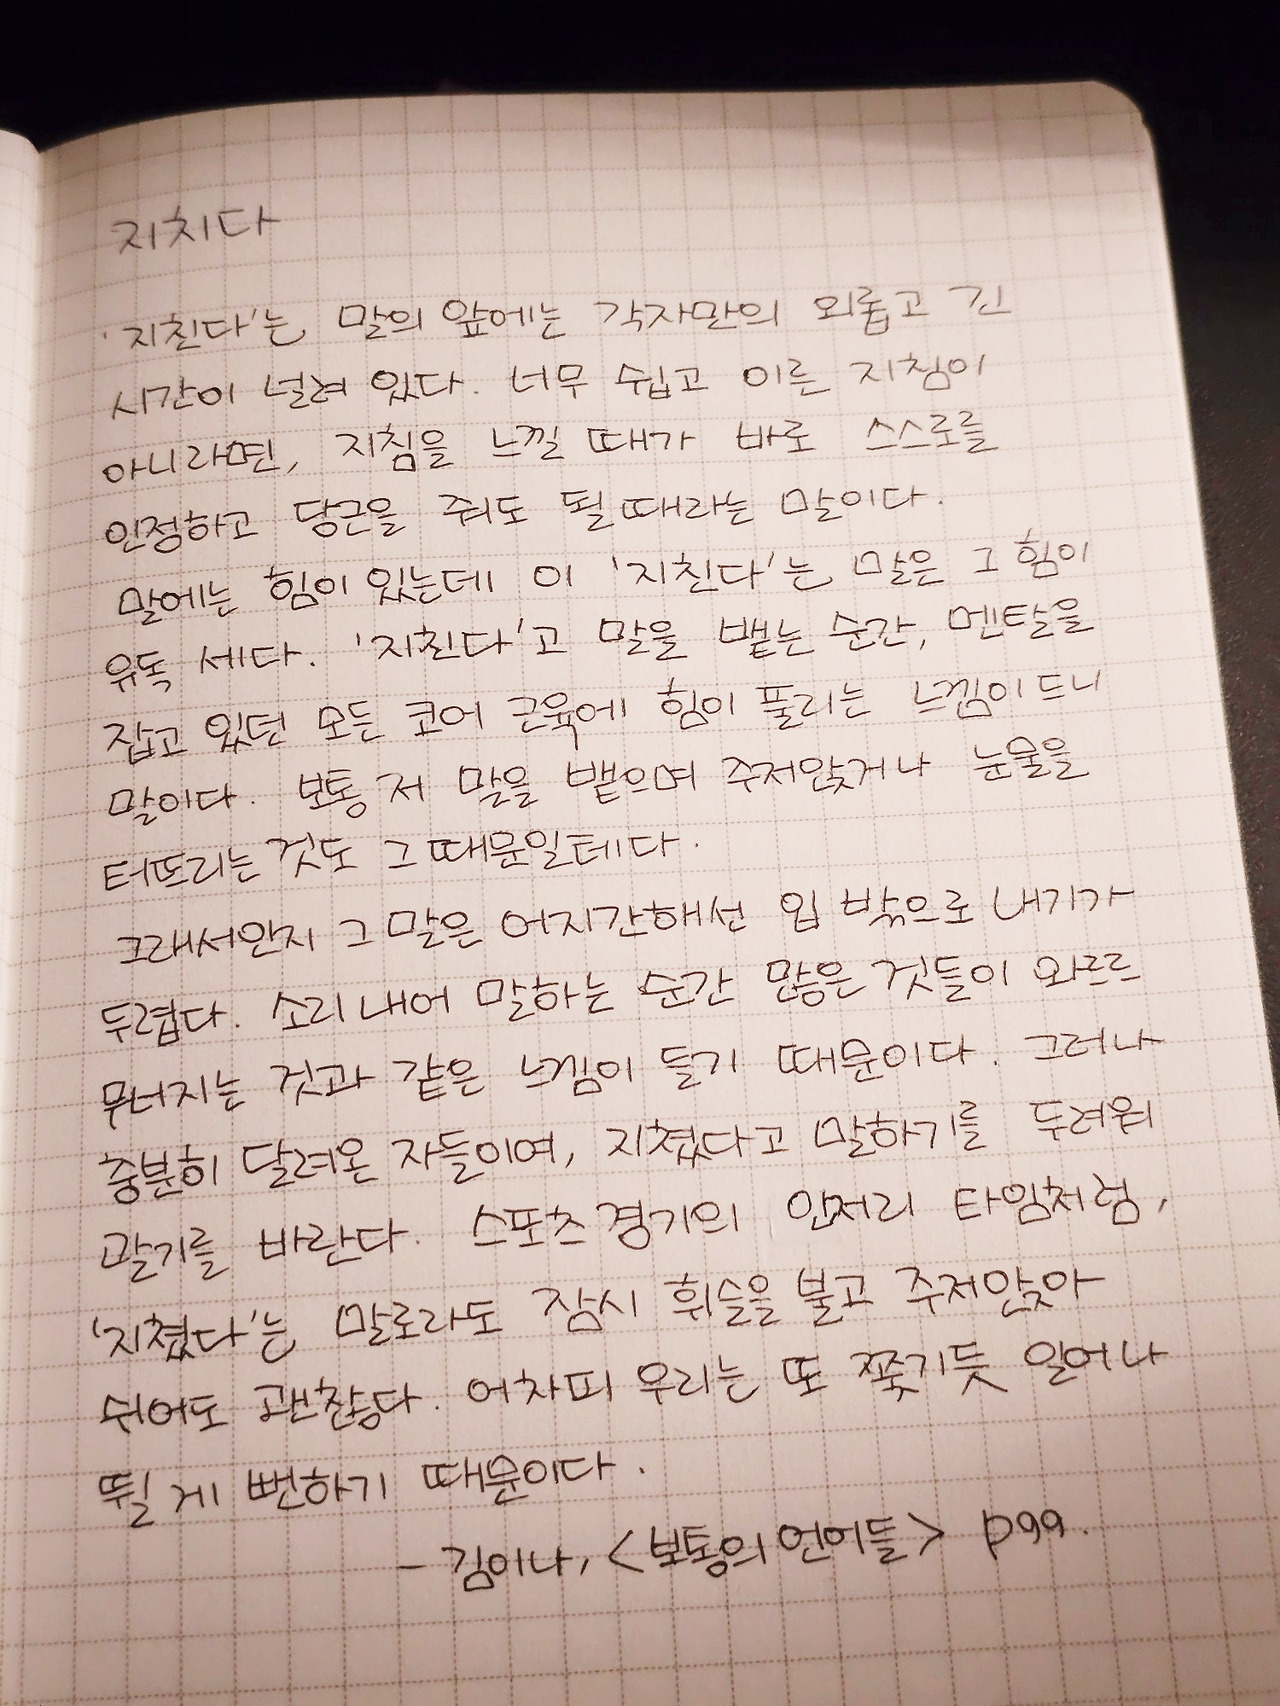 지치다
'지친다'는 말의 앞에는 각자만의 외롭고 긴
시간이 널려 있다. 너무 쉽고 이른 지침이
아니라면, 지침을 느낄 때가 바로 스스로를
인정하고 당근을 줘도 될 때라는 말이다.
말에는 힘이 있는데 이 '지친다'는 말은 그 힘이
유독 세다. '지친다'고 말을 뱉는 순간, 멘탈을
잡고 있던 모든 코어 근육에 힘이 풀리는 느낌이 드니
말이다. 보통 저 말을 뱉으며 주저앉거나 눈물을
터뜨리는 것도 그 때문일테다.
그래서인지 그 말은 어지간해선 입 밖으로 내기가
두렵다. 소리 내어 말하는 순간 많은 것들이 와르르
무너지는 것과 같은 느낌이 들기 때문이다. 그러나
충분히 달려온 자들이여, 지쳤다고 말하기를 두려워
말기를 바란다. 스포츠 경기의 인저리 타임처럼,
'지쳤다'는 말로라도 잠시 휘슬을 불고 주저앉아
쉬어도 괜찮다. 어차피 우리는 또 쫓기듯 일어나
뛸 게 뻔하기 때문이다.
- 김이나, <보통의 언어들> p99.